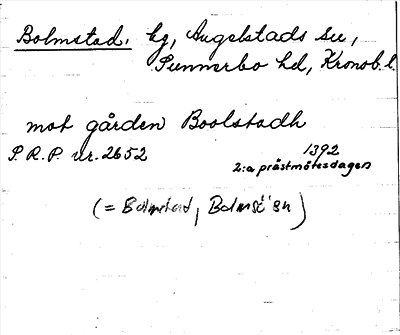 Bolmstad. kg, Angelstads sn,
Sunnerbo hd, Kronob. l.
mot gården Boolstadh
S.R.P. nr. 2652 1392
2:a prästmötesdagen
(= Bolmstad, Bolmsö sn)